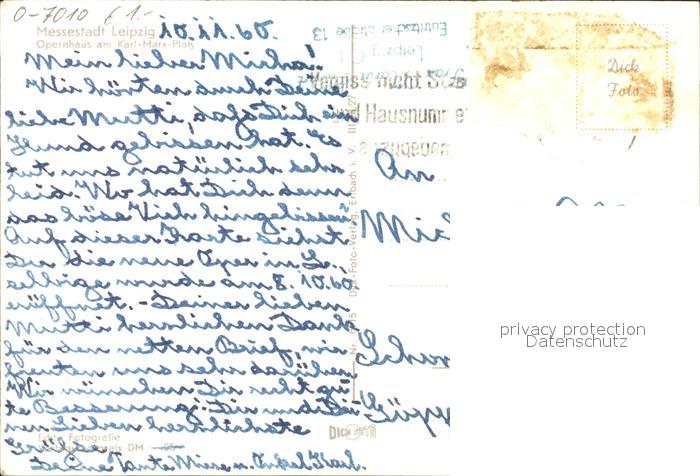 O-7010 € 1.-
Messestadt Leipzig 10.11.60.
Opernhaus am Karl-Marx-Platz
Mein lieber Micha!
Wir hörten durch Deine
liebe Mutti, dass Dich ein
Hund gebissen hat. Es
tut uns natürlich sehr
leid. Wo hat Dich denn
das böse Vieh hingebissen?
Auf dieser Karte siehst
Du die neue Oper in L.,
selbige wurde am 8.10.60
eröffnet. - Deiner lieben
Mutti herzlichen Dank
für den netten Brief, wir
freuten uns sehr darüber.
Wir wünschen Dir recht gu-
te Besserung! Dir und Dei-
nen Lieben herzlichste
Grüsse
Deine Tante Miene u. Onkel
Echte Fotografie
DM
Leipzig C 1
Eutritzscher Straße 13
nicht
Hausnummer
anzugeben
Dick
Foto
An
Mic
Schw
Göpp
Dick-Foto-Verlag, Erlbach i. V.
DICK
privacy protection
Datenschutz